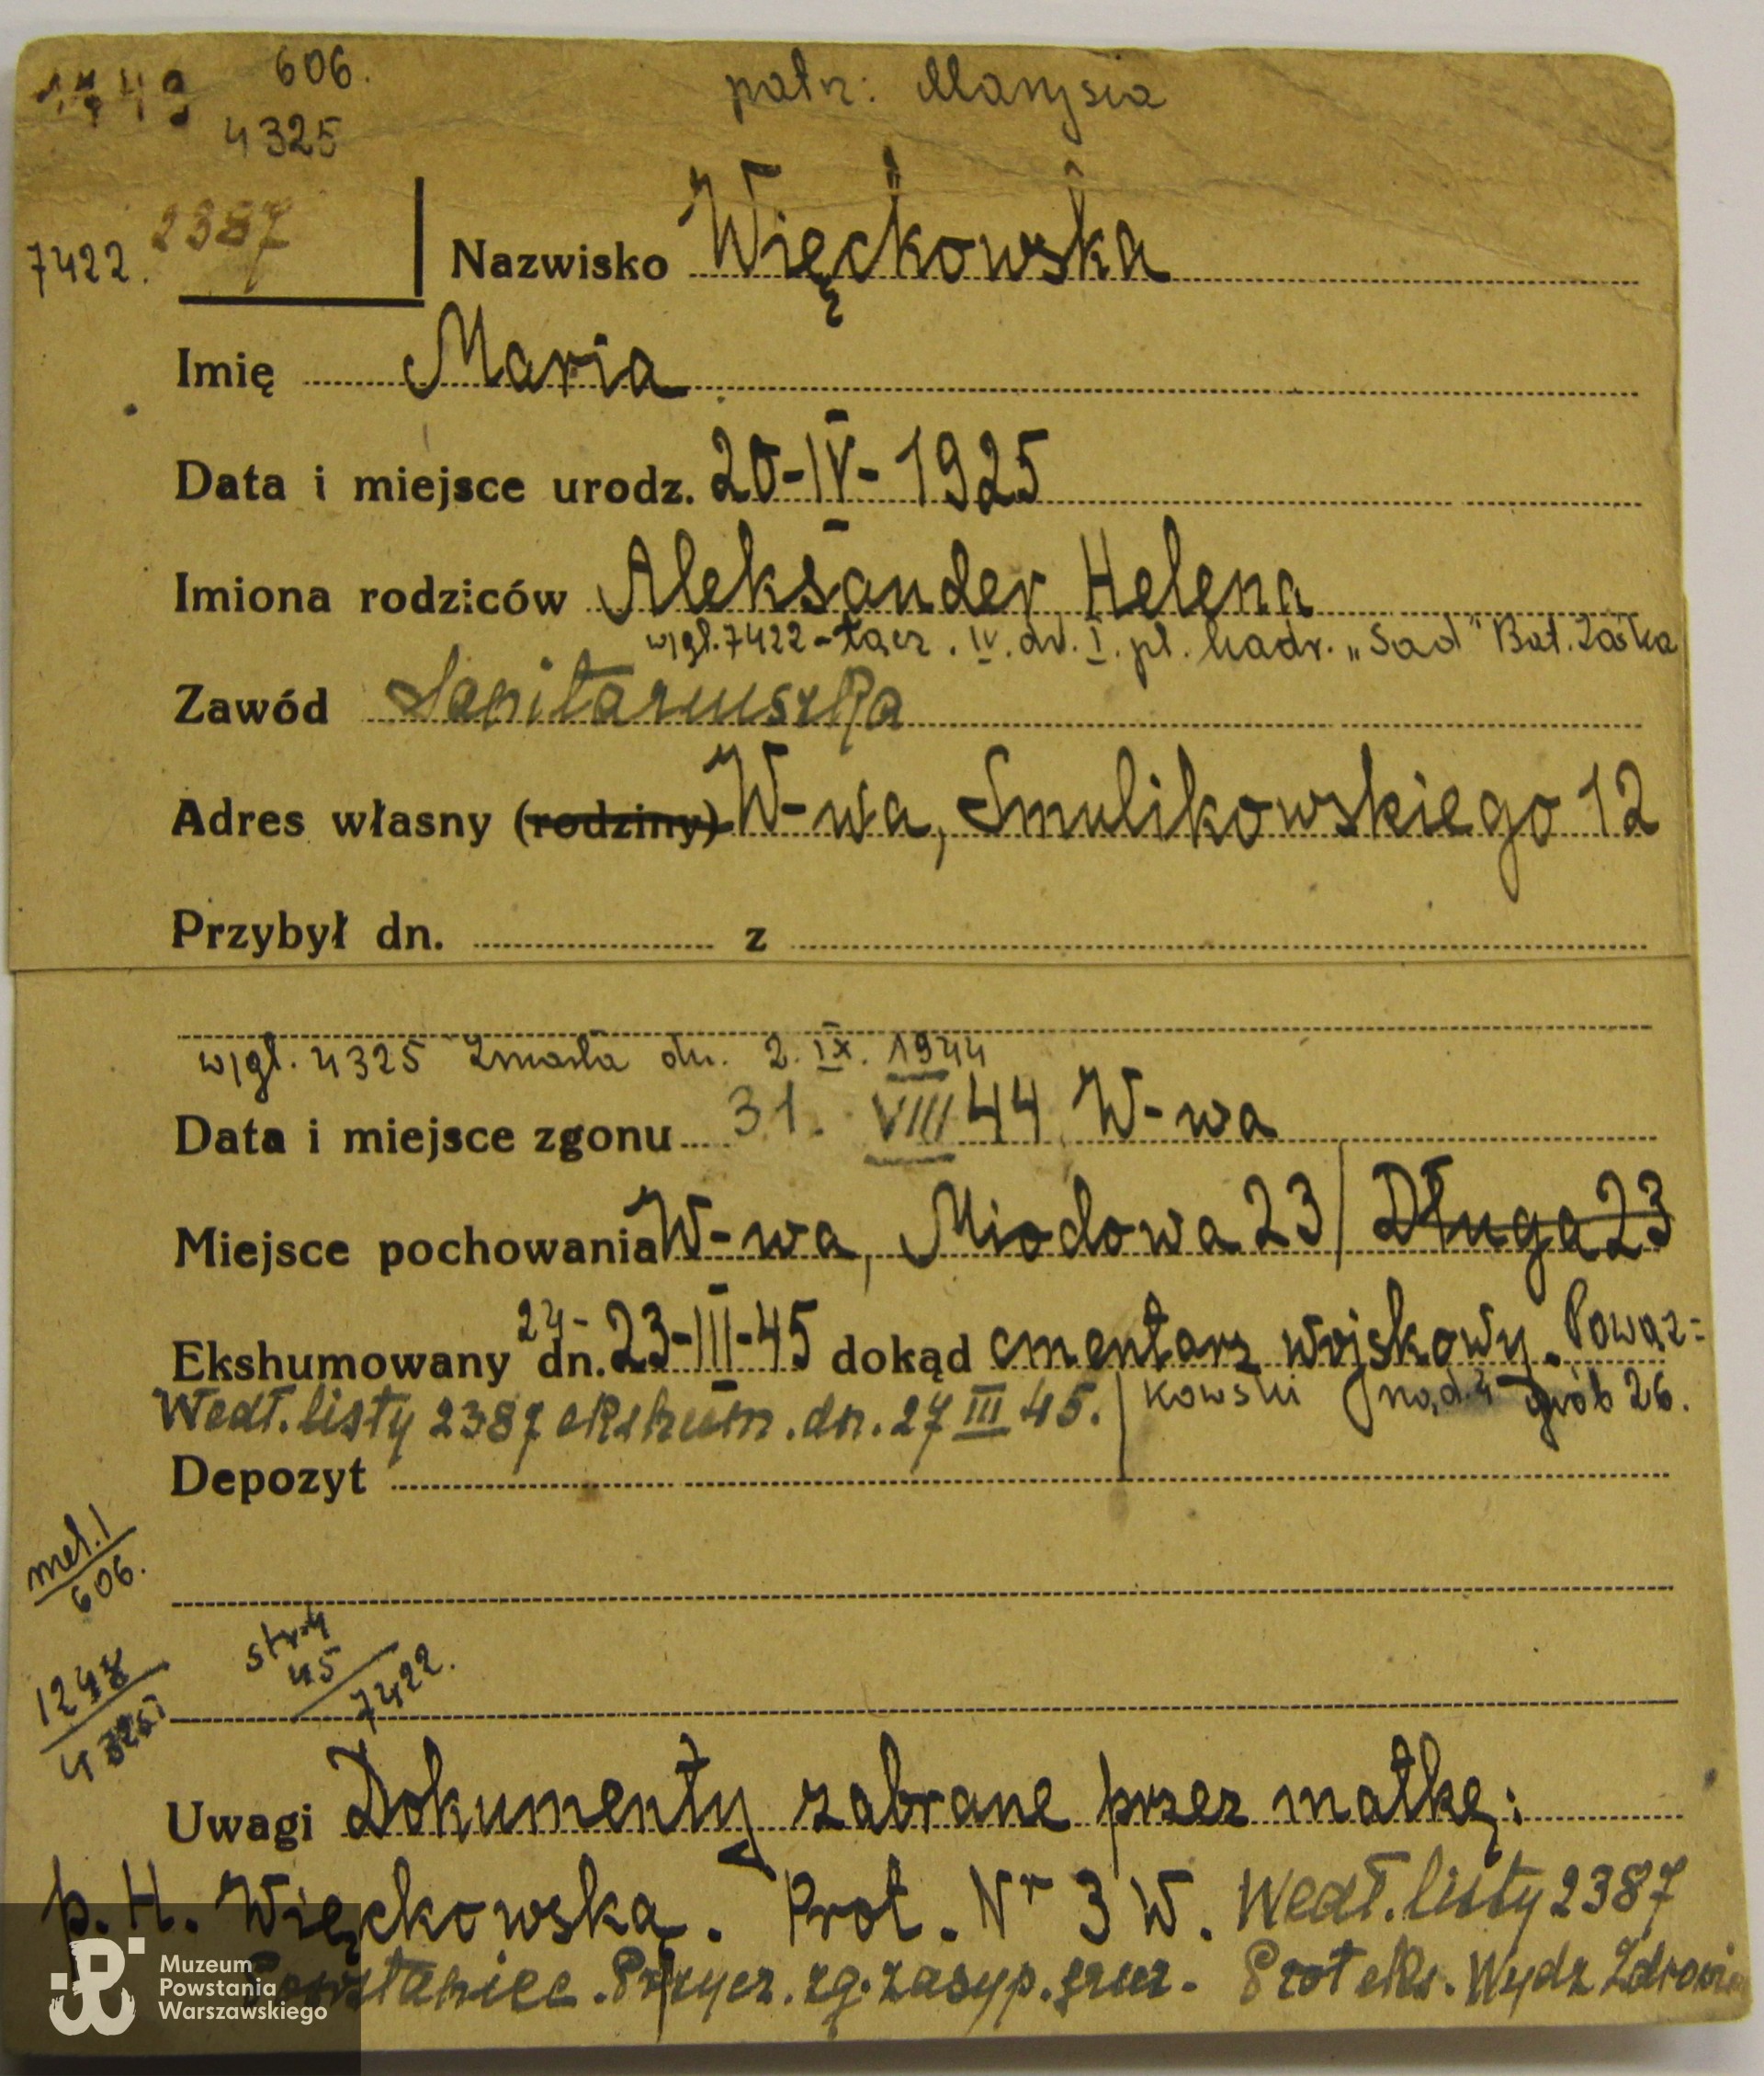 606.
patrz: Marysia
4325
2387
7422.
Nazwisko Więckowska
Imię Maria
Data i miejsce urodz. 20-IV-1925
Imiona rodziców Aleksander Helena
w/gl. 7422 - łącz. IV. dr. I. pl. kadr. „Sad" Bat. Zośka
Zawód Sanitariuszka
Adres własny (rodziny) W-wa, Smulikowskiego 12
Przybył dn. z
w/gl. 4325 Zmarła dn. 2. IX. 1944
Data i miejsce zgonu 31. VIII 44 W-wa
Miejsce pochowania W-wa, Miodowa 23/ Długa 23
24-
Ekshumowany dn. 23-III-45 dokąd cmentarz wojskowy. Powąz-
Wedł. listy 2387 ekshum. dn. 27 III 45. / kowski rząd 4 grób 26.
Depozyt
mel. 1
606.
str. 4
45
7422.
Uwagi Dokumenty zabrane przez matkę:
p. H. Więckowską. Prot. Nr 3 W. Wedł. listy 2387
Powstaniec. Przycz. zg. zasyp. gruz. Prot eks. Wydz Zdrowia
Muzeum
Powstania
Warszawskiego